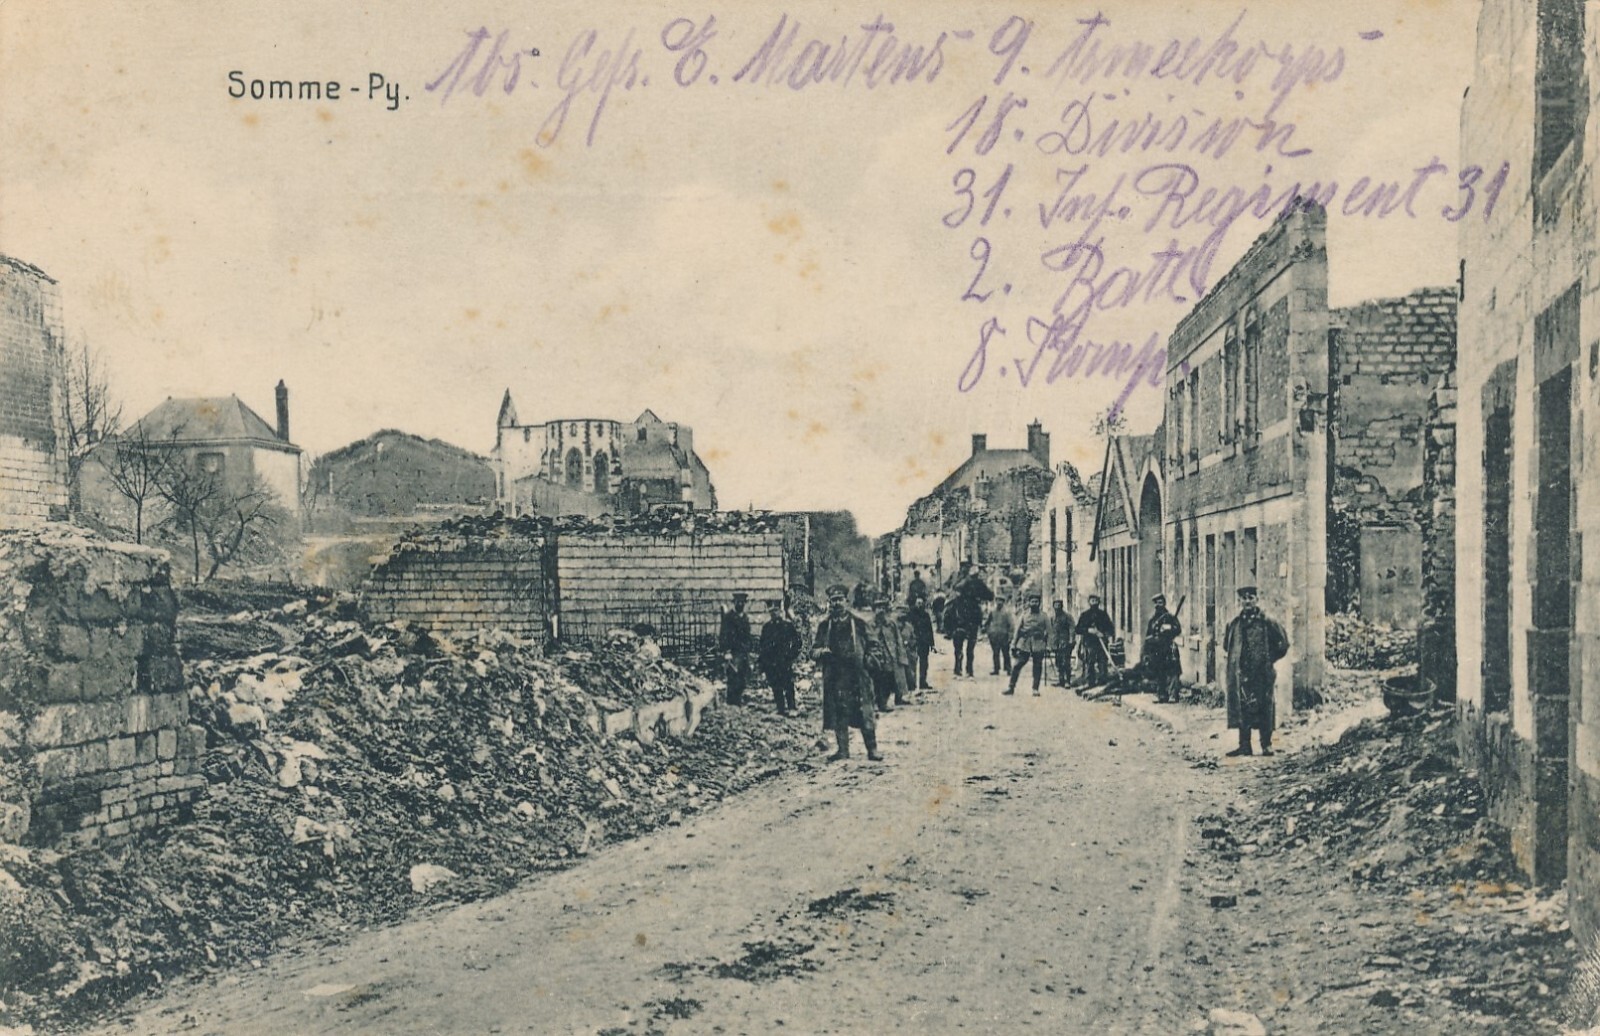 Somme-Py. Abs. Gefr. E. Martens 9. Armeekorps
18. Division
31. Inf. Regiment 31
2. Batl
8. Komp.